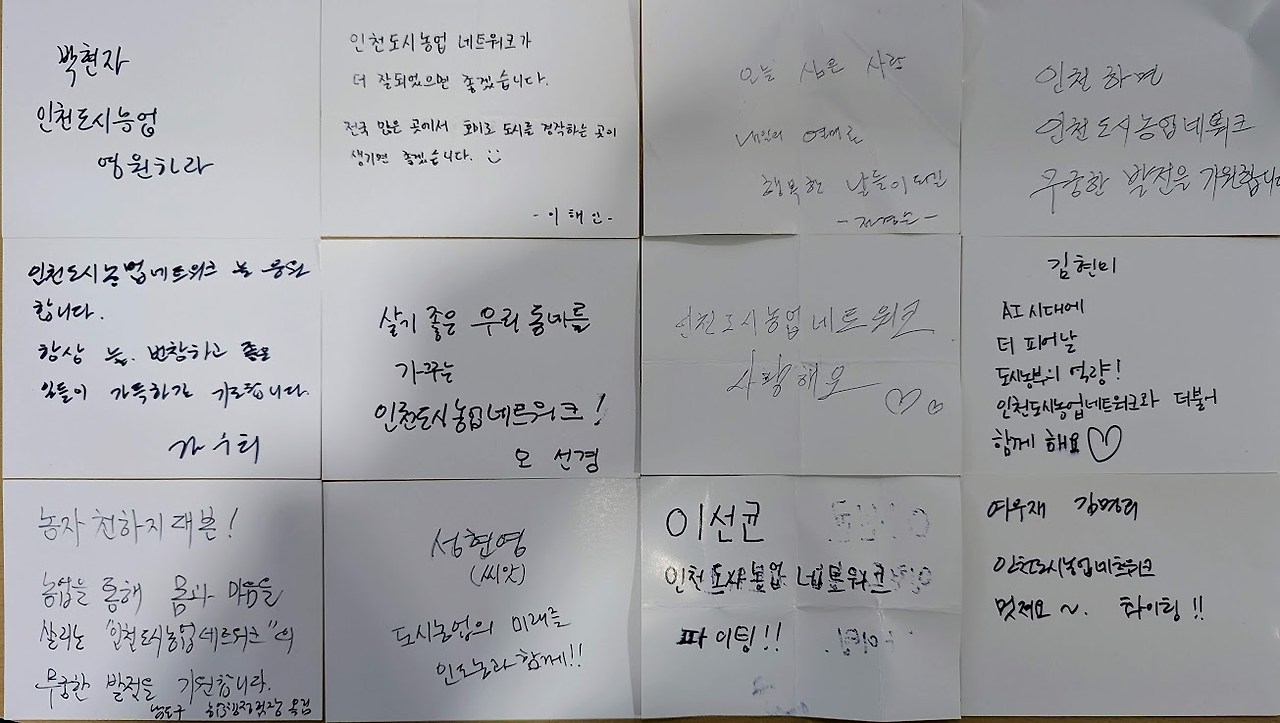 박현자
인천도시농업
영원하라
인천도시농업 네트워크가
더 잘되었으면 좋겠습니다.
전국 많은 곳에서 호미로 도시를 경작하는 곳이
생기면 좋겠습니다.
- 이해인 -
오늘 심은 사람
내일의 열매로
행복한 날들이 되길
인천 하면
인천도시농업네트워크
무궁한 발전을 기원합니다
인천도시농업네트워크 늘 응원
합니다.
항상 늘. 번창하고 좋은
일들이 가득하길 기도합니다.
살기 좋은 우리 동네를
가꾸는
인천도시농업네트워크!
오 선경
인천도시농업네트워크
사랑해요
김현미
AI 시대에
더 피어날
도시농부의 역량!
인천도시농업네트워크와 더불어
함께 해요
농자 천하지대본!
농업을 통해 몸과 마음을
살리는 "인천도시농업네트워크"의
무궁한 발전을 기원합니다.
성현영
(씨앗)
도시농업의 미래를
인도농과 함께!!
이선균
인천도시농업네트워크
파이팅!!
여우재
인천도시농업네트워크
멋져요~. 화이팅!!